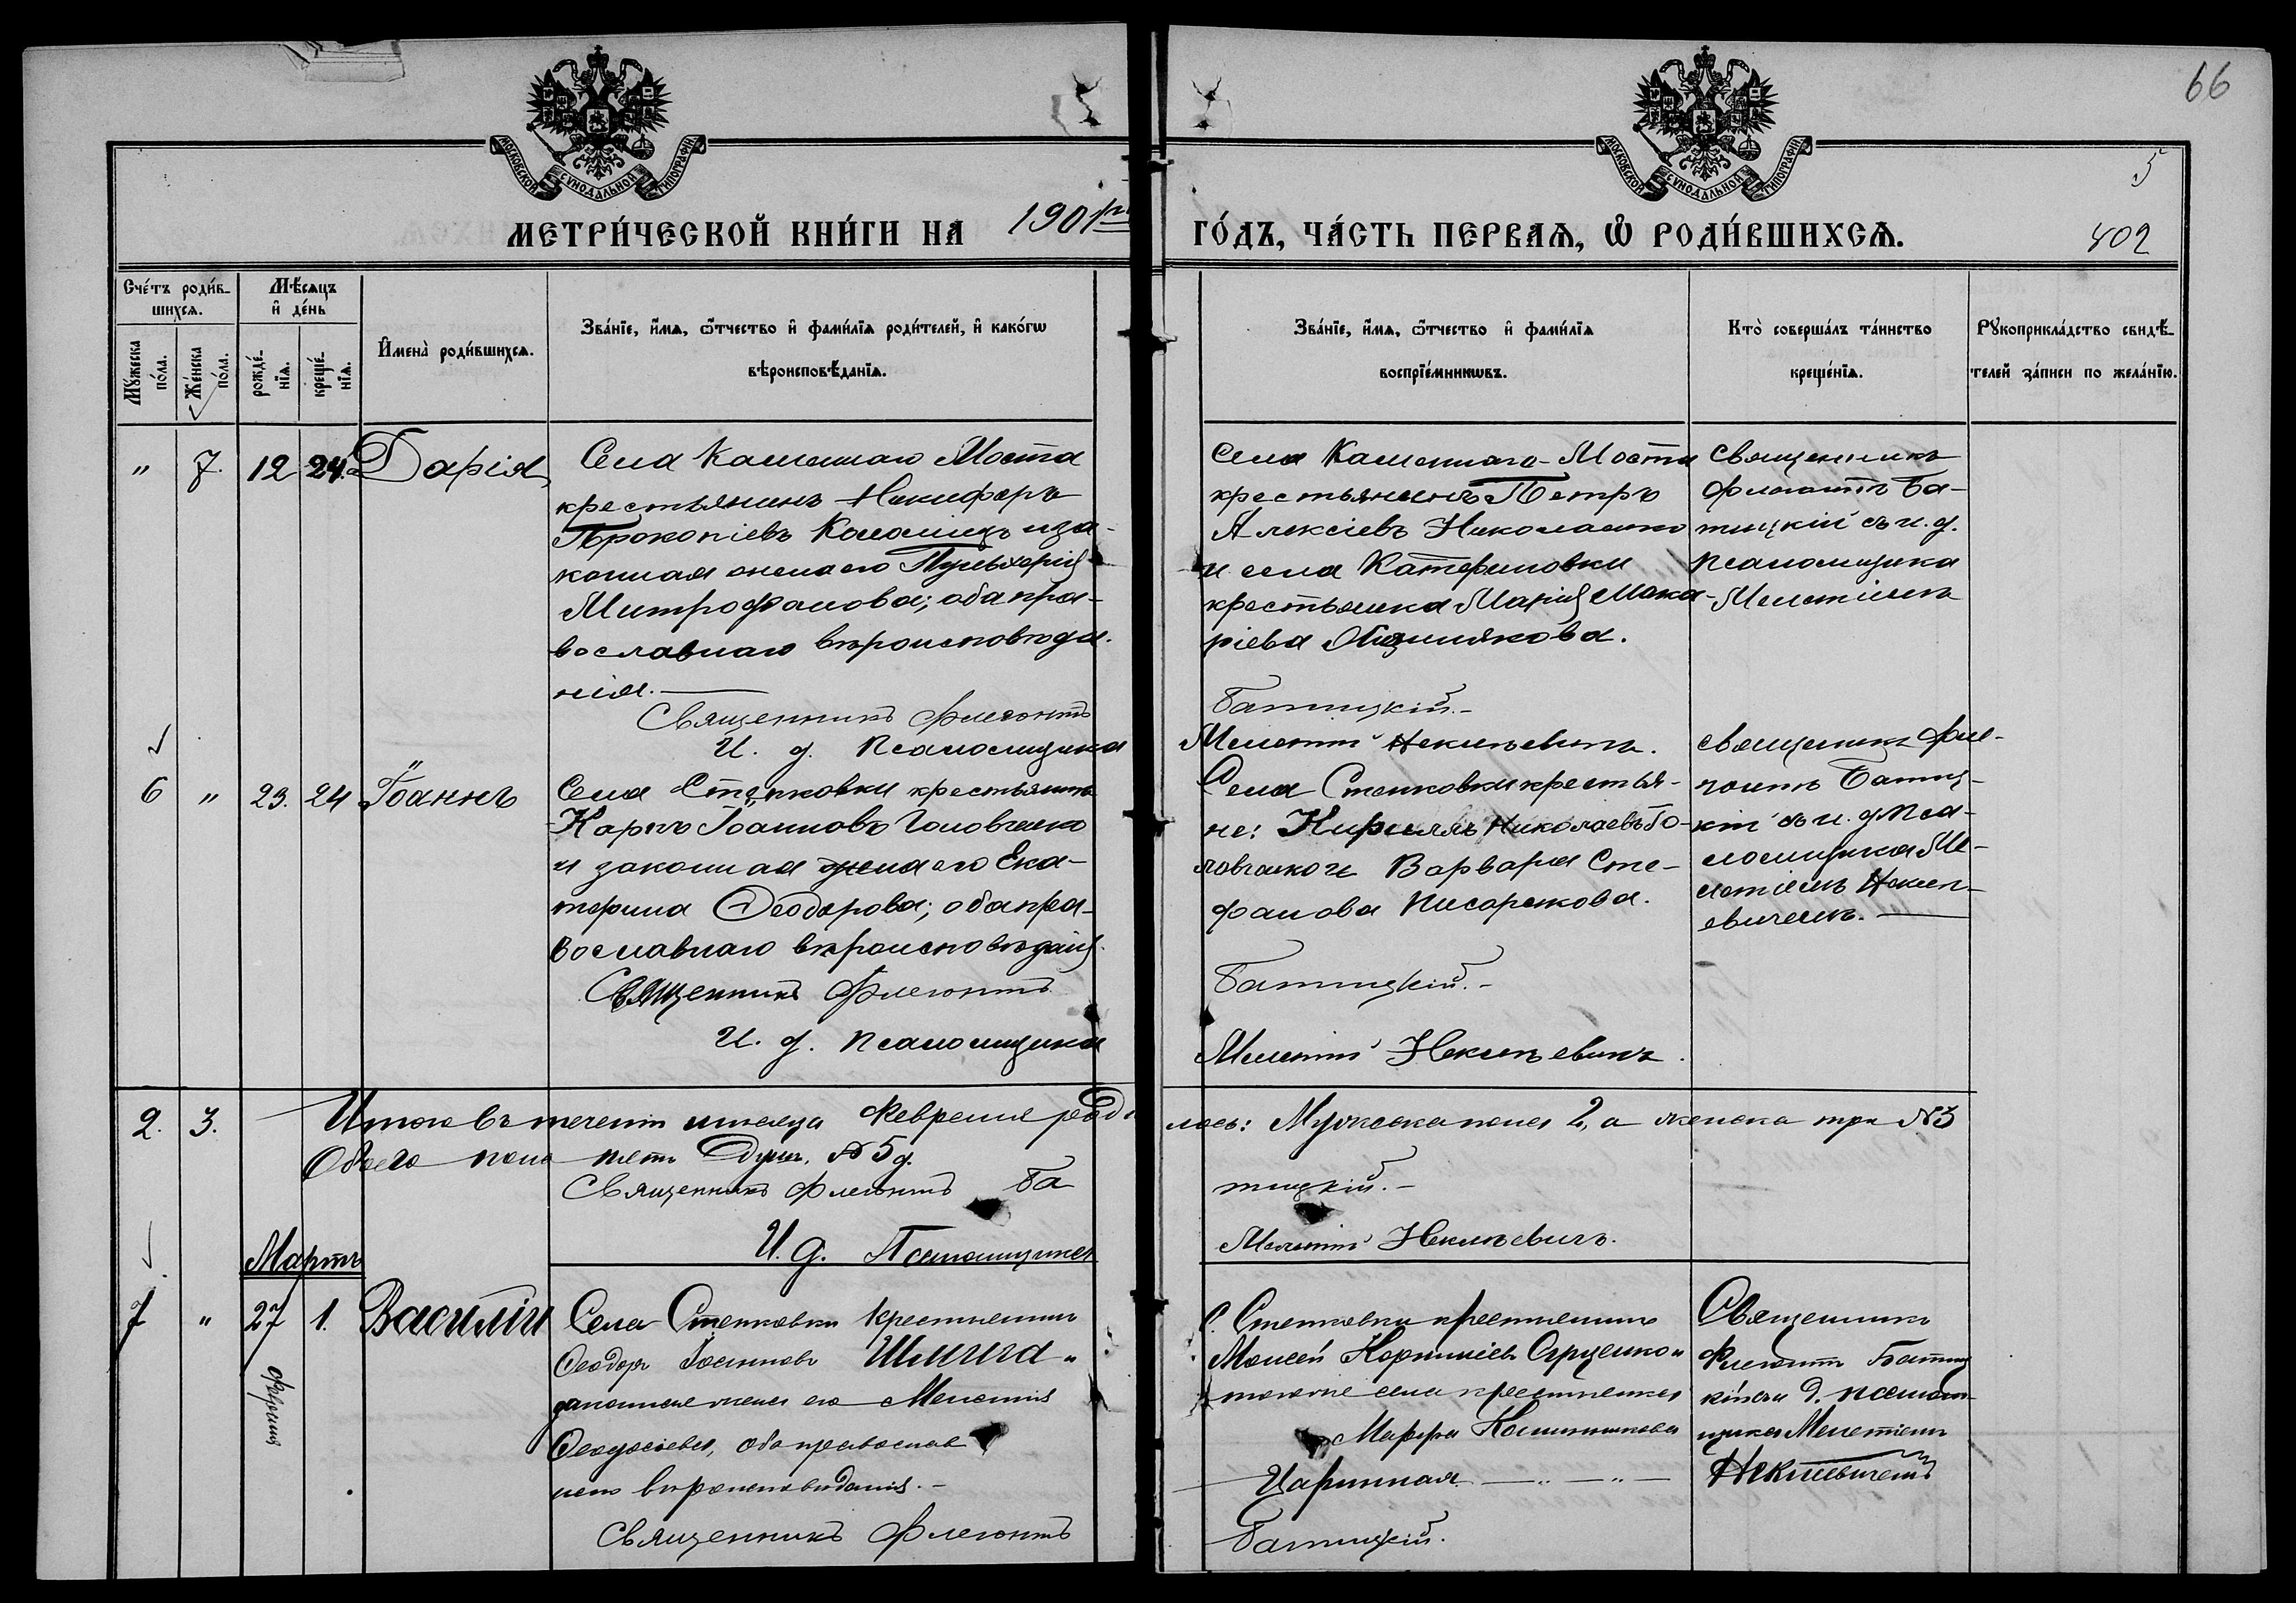 66
5
МОСКОВСКОЙ СѴНОДАЛЬНОЙ ТИПОГРАФІИ
МОСКОВСКОЙ СѴНОДАЛЬНОЙ ТИПОГРАФІИ
МЕТРИ́ЧЕСКОЙ КНИ́ГИ НА 1901
ГО́ДЪ, ЧА́СТЬ ПЕРВАѦ, Ѡ РОДИ́ВШИХСѦ.
402
Сче́тъ роди́в-
шихсѧ.
Мѣ́сѧцъ
и҆ де́нь
Мꙋ́жеска
по́ла.
Же́нска
по́ла.
рожде́-
нїѧ.
креще́-
нїѧ.
И҆мена̀ роди́вшихсѧ.
Зва́нїе, и҆́мѧ, ѻ҆́тчество и҆ фами́лїѧ роди́телей, и҆ како́гѡ
вѣроисповѣ́данїѧ.
Зва́нїе, и҆́мѧ, ѻ҆́тчество и҆ фами́лїѧ
воспрїе́мникѡвъ.
Кто̀ соверша́лъ та́инство
креще́нїѧ.
Рꙋкоприкла́дство свидѣ́-
телей за́писи по жела́нїю.
" 7. 12 24. Дарія
Села Каменнаго Моста
крестьянинъ Никифоръ
Прокопіевъ Коломіецъ и за-
конная жена его Пульхерія
Митрофанова; оба пра-
вославнаго вѣроисповѣда-
нія.
Священникъ Флегонтъ
И. д. Псаломщика
Села Каменнаго-Моста
крестьянинъ Петръ
Алексіевъ Николаенко
и села Катериновки
крестьянка Марія Мака-
ріева
Батицкій.-
Мелетій Некилевичъ.
Священникъ
Флегонтъ Ба-
тицкій съ и. д.
псаломщика
Мелетіемъ
6 " 23. 24 Іоаннъ
Села Степковки крестьянинъ
Карпъ Іоанновъ Головченко
и законная жена его Ека-
терина Ѳеодорова; оба пра-
вославнаго вѣроисповѣданія.
Священникъ Флегонтъ
И. д. Псаломщика
Села Степковки крестья-
не: Кириллъ Николаевъ Го-
ловченко и Варвара Сте-
фанова Писаренкова.
Батицкій.-
Мелетій Некилевичъ.
священникъ Фле-
гонтъ Батиц-
кій съ и. д. Пса-
ломщика Ме-
летіемъ Некил-
евичемъ.
2. 3. Итого въ теченіи мѣсяца Февраля роди
лось: Мужеска пола 2, а женска три № 3
Обоего пола пять душъ. № 5 д.
Священникъ Флегонтъ Ба
тицкій.-
И. д. Псаломщика
Мелетій Некилевичъ.
Мартъ
7 " 27 1. Василій
Февраля
Села Степковки крестьянинъ
Ѳеодоръ Іоанновъ Шмига и
законная жена его Меланія
Ѳеодосіева, оба православ
наго вѣроисповѣданія.-
Священникъ Флегонтъ
С. Степковки крестьянинъ
Моисей и
тогоже села крестьянка
Марфа
Царинная
Батицкій.
Священникъ
Флегонтъ Батиц
кій съ и д. псалом-
щика Мелетіемъ
Некилевичемъ